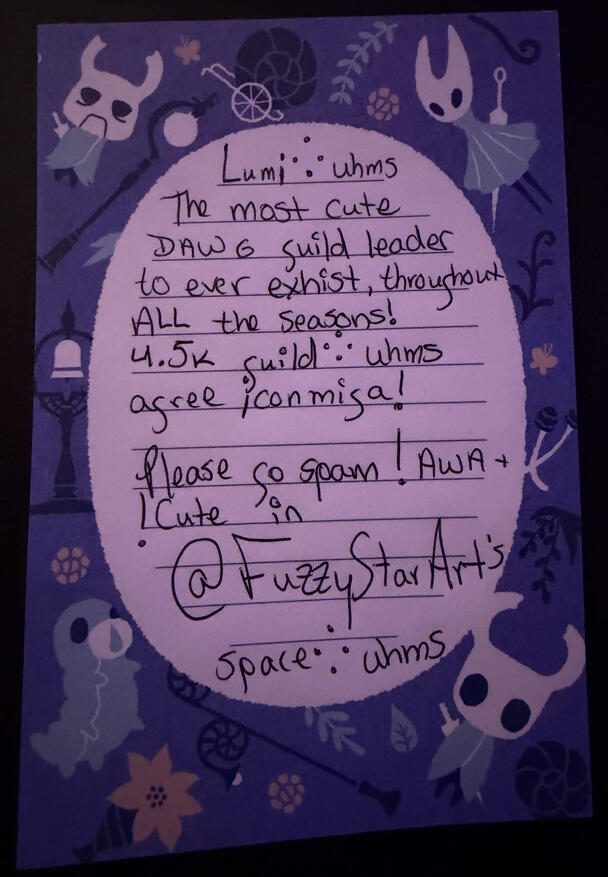 Lumi ∵ uhms
The most cute
DAWG guild leader
to ever exhist, throughout
ALL the seasons!
4.5k guild ∵ uhms
agree ¡conmiga!
Please go spam ! AWA +
!Cute in
@FuzzyStarArt's
space ∵ uhms